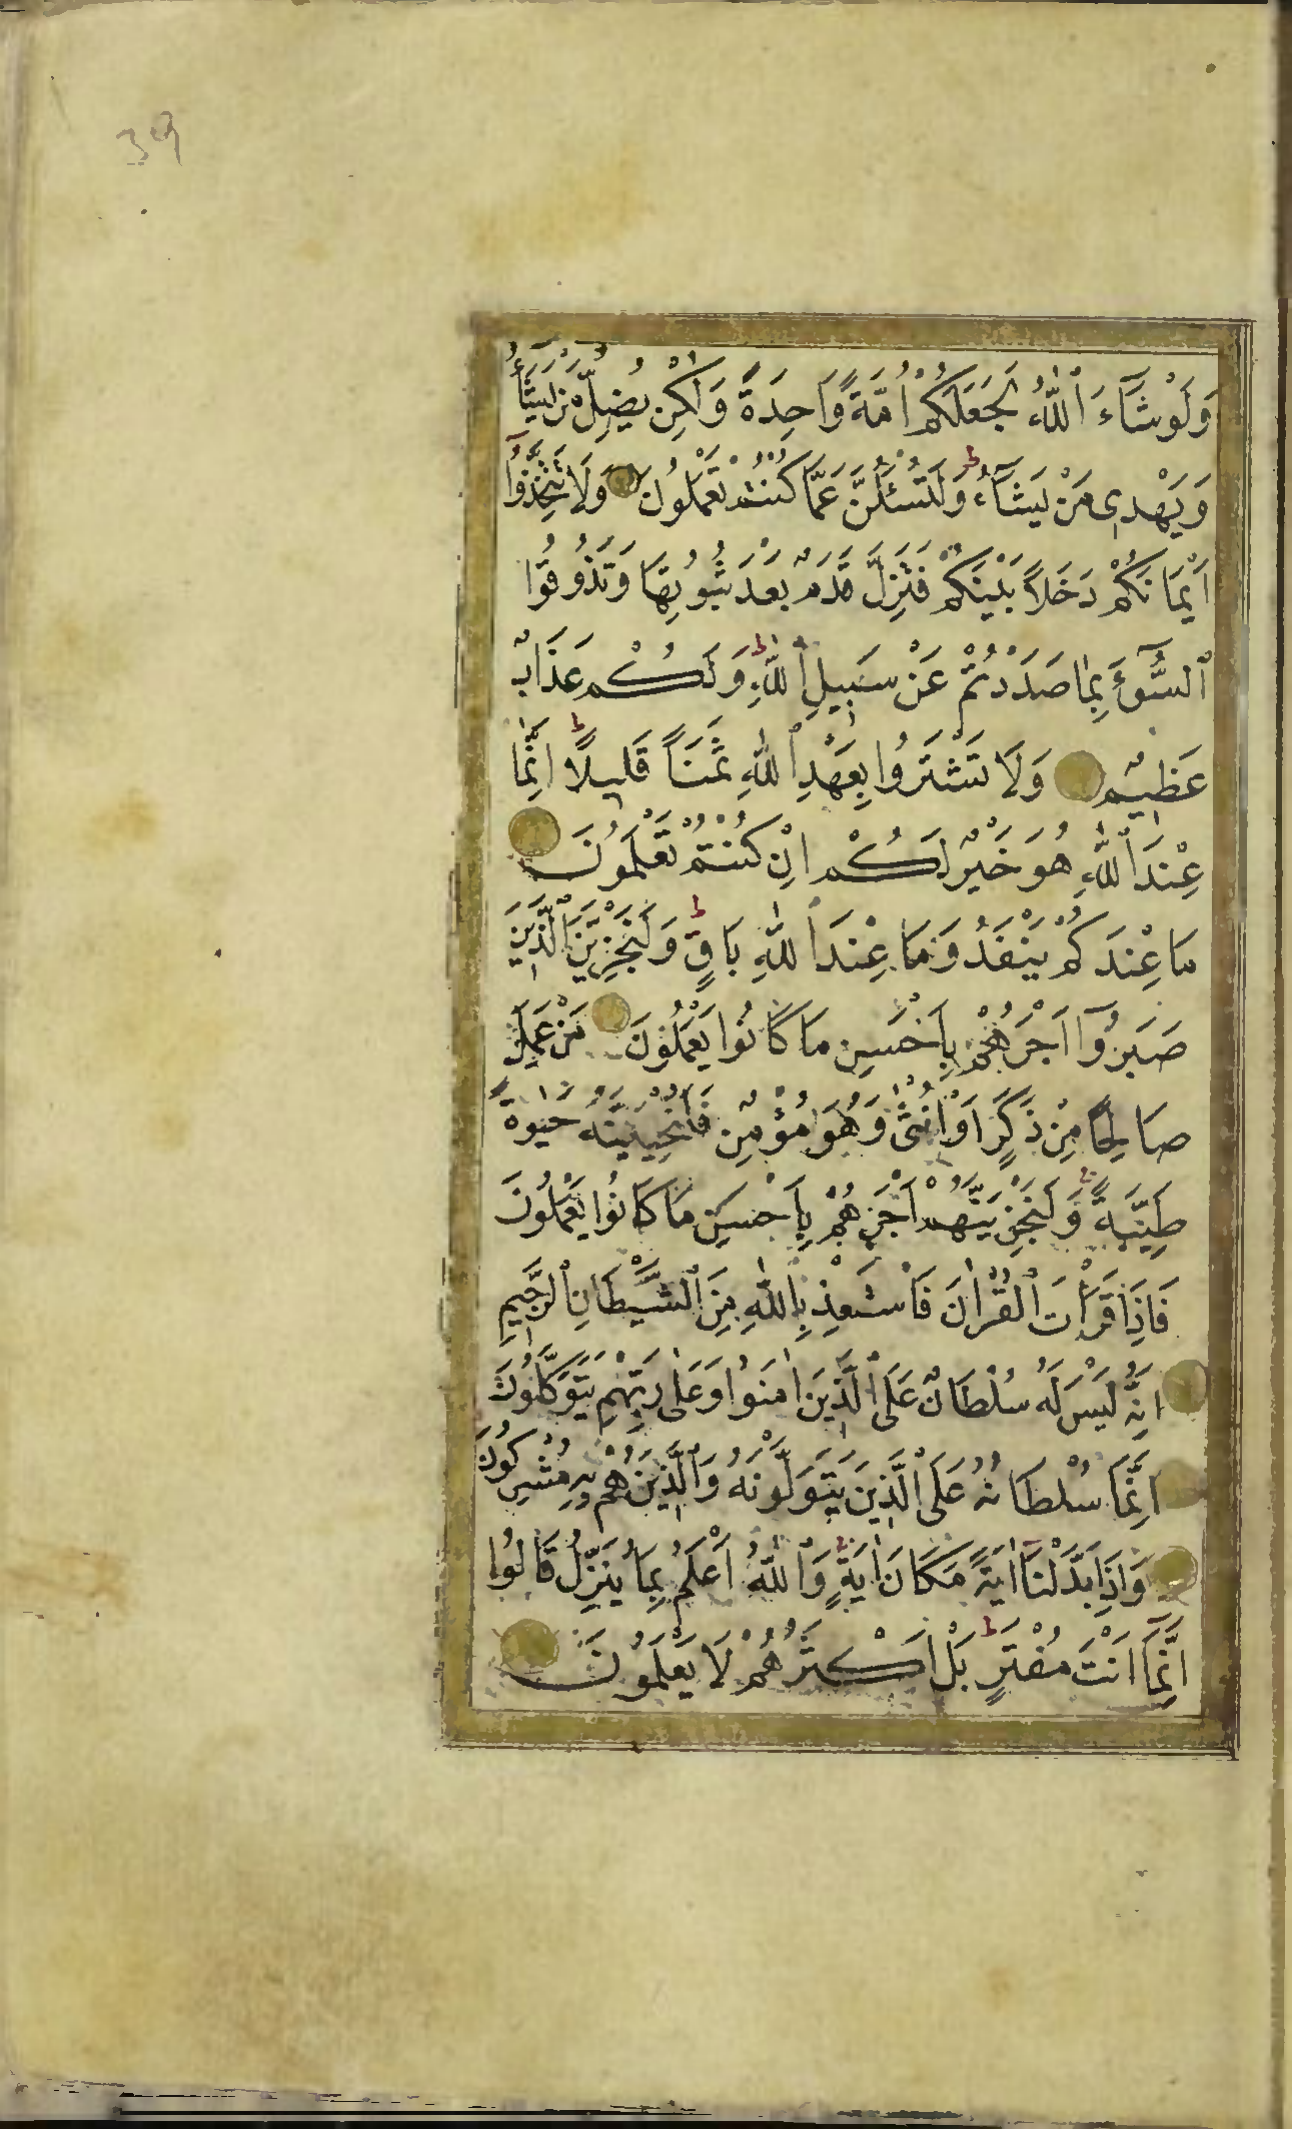 39
وَلَوْ شَآءَ ٱللّٰهُ لَجَعَلَكُمْ اُمَّةً وَاحِدَةً وَلٰكِنْ يُضِلُّ مَنْ يَشَآءُ
وَيَهْدِى مَنْ يَشَآءُ ط وَلَتُسْئَلُنَّ عَمَّا كُنْتُمْ تَعْمَلُونَ وَلَا تَتَّخِذُوٓا
اَيْمَانَكُمْ دَخَلاً بَيْنَكُمْ فَتَزِلَّ قَدَمٌ بَعْدَ ثُبُوتِهَا وَتَذُوقُوا
ٱلسُّوٓءَ بِمَا صَدَدْتُمْ عَنْ سَبِيلِ ٱللّٰهِ ط وَلَكُمْ عَذَابٌ
عَظِيمٌ وَلَا تَشْتَرُوا بِعَهْدِ ٱللّٰهِ ثَمَنًا قَلِيلًا ط اِنَّمَا
عِنْدَ ٱللّٰهِ هُوَ خَيْرٌ لَكُمْ اِنْ كُنْتُمْ تَعْلَمُونَ
مَا عِنْدَكُمْ يَنْفَدُ وَمَا عِنْدَ ٱللّٰهِ بَاقٍ ط وَلَنَجْزِيَنَّ ٱلَّذِينَ
صَبَرُوٓا اَجْرَهُمْ بِاَحْسَنِ مَا كَانُوا يَعْمَلُونَ مَنْ عَمِلَ
صَالِحًا مِنْ ذَكَرٍ اَوْ اُنْثٰى وَهُوَ مُؤْمِنٌ فَلَنُحْيِيَنَّهُ حَيٰوةً
طَيِّبَةً ط وَلَنَجْزِيَنَّهُمْ اَجْرَهُمْ بِاَحْسَنِ مَا كَانُوا يَعْمَلُونَ
فَاِذَا قَرَأْتَ ٱلْقُرْاٰنَ فَاسْتَعِذْ بِاللّٰهِ مِنَ ٱلشَّيْطَانِ ٱلرَّجِيمِ
اِنَّهُ لَيْسَ لَهُ سُلْطَانٌ عَلَى ٱلَّذِينَ اٰمَنُوا وَعَلٰى رَبِّهِمْ يَتَوَكَّلُونَ
اِنَّمَا سُلْطَانُهُ عَلَى ٱلَّذِينَ يَتَوَلَّوْنَهُ وَٱلَّذِينَ هُمْ بِهِ مُشْرِكُونَ
وَاِذَا بَدَّلْنَآ اٰيَةً مَكَانَ اٰيَةٍ وَٱللّٰهُ اَعْلَمُ بِمَا يُنَزِّلُ قَالُوٓا
اِنَّمَآ اَنْتَ مُفْتَرٍ ط بَلْ اَكْثَرُهُمْ لَا يَعْلَمُونَ